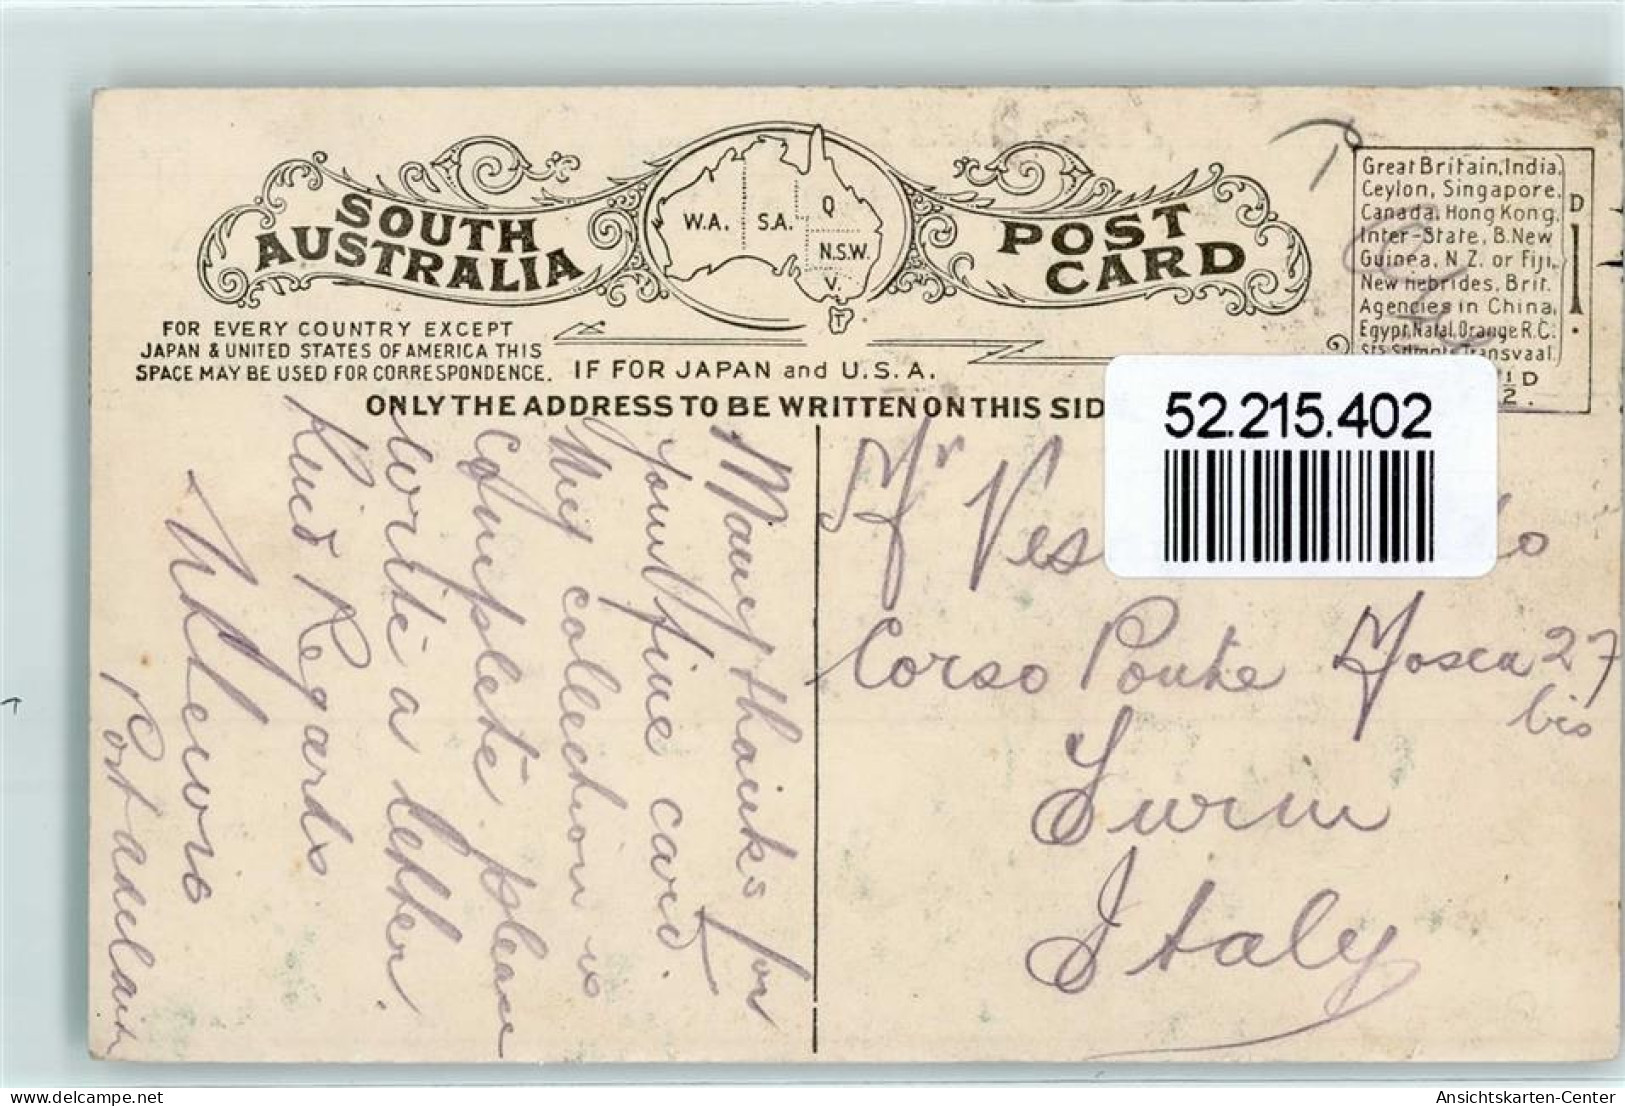 SOUTH AUSTRALIA
W.A. S.A. Q N.S.W. V. T
POST CARD
FOR EVERY COUNTRY EXCEPT
JAPAN & UNITED STATES OF AMERICA THIS
SPACE MAY BE USED FOR CORRESPONDENCE.
IF FOR JAPAN and U.S.A.
ONLY THE ADDRESS TO BE WRITTEN ON THIS SID
Great Britain, India,
Ceylon, Singapore,
Canada, Hong Kong,
Inter-State, B. New
Guinea, N.Z. or Fiji,
New Hebrides, Brit.
Agencies in China,
Egypt, Natal, Orange R.C.
Transvaal
1 D.
1/2 D.
52.215.402
Many thanks for
your fine card.
My collection is
complete please
write a letter.
Kind Regards
Port Adelaide
Mr Ves
Corso Ponte Mosca 27
bis
Turin
Italy
delcampe.net
Ansichtskarten-Center